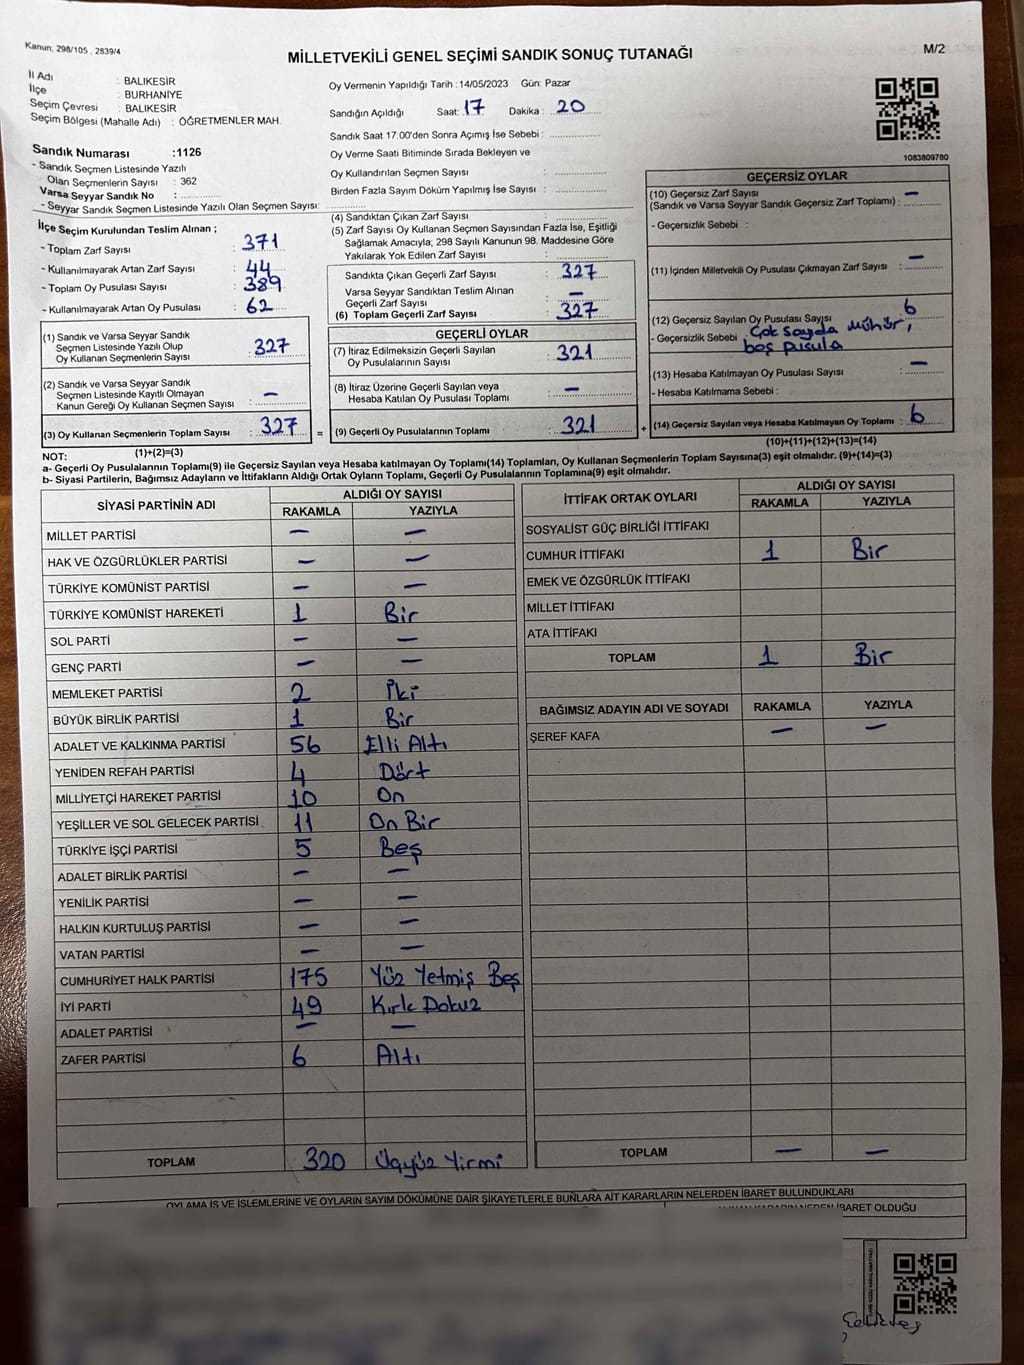 Kanun, 298/105 , 2839/4
MİLLETVEKİLİ GENEL SEÇİMİ SANDIK SONUÇ TUTANAĞI
M/2
İl Adı : BALIKESİR
İlçe : BURHANİYE
Seçim Çevresi : BALIKESİR
Seçim Bölgesi (Mahalle Adı) : ÖĞRETMENLER MAH.
Oy Vermenin Yapıldığı Tarih :14/05/2023 Gün: Pazar
Sandığın Açıldığı Saat: 17 Dakika : 20
Sandık Saat 17.00'den Sonra Açımış İse Sebebi :
Oy Verme Saati Bitiminde Sırada Bekleyen ve
Oy Kullandırılan Seçmen Sayısı :
Birden Fazla Sayım Döküm Yapılmış İse Sayısı :
1083809780
Sandık Numarası :1126
- Sandık Seçmen Listesinde Yazılı
Olan Seçmenlerin Sayısı : 362
Varsa Seyyar Sandık No :
- Seyyar Sandık Seçmen Listesinde Yazılı Olan Seçmen Sayısı:
İlçe Seçim Kurulundan Teslim Alınan ;
- Toplam Zarf Sayısı : 371
- Kullanılmayarak Artan Zarf Sayısı : 44
- Toplam Oy Pusulası Sayısı : 389
- Kullanılmayarak Artan Oy Pusulası : 62
(1) Sandık ve Varsa Seyyar Sandık
Seçmen Listesinde Yazılı Olup
Oy Kullanan Seçmenlerin Sayısı : 327
(2) Sandık ve Varsa Seyyar Sandık
Seçmen Listesinde Kayıtlı Olmayan
Kanun Gereği Oy Kullanan Seçmen Sayısı : —
(3) Oy Kullanan Seçmenlerin Toplam Sayısı : 327 =
(1)+(2)=(3)
(4) Sandıktan Çıkan Zarf Sayısı :
(5) Zarf Sayısı Oy Kullanan Seçmen Sayısından Fazla İse, Eşitliği
Sağlamak Amacıyla; 298 Sayılı Kanunun 98. Maddesine Göre
Yakılarak Yok Edilen Zarf Sayısı :
Sandıkta Çıkan Geçerli Zarf Sayısı : 327
Varsa Seyyar Sandıktan Teslim Alınan
Geçerli Zarf Sayısı : —
(6) Toplam Geçerli Zarf Sayısı : 327
GEÇERLİ OYLAR
(7) İtiraz Edilmeksizin Geçerli Sayılan
Oy Pusulalarının Sayısı : 321
(8) İtiraz Üzerine Geçerli Sayılan veya
Hesaba Katılan Oy Pusulası Toplamı : —
(9) Geçerli Oy Pusulalarının Toplamı : 321 +
GEÇERSİZ OYLAR
(10) Geçersiz Zarf Sayısı —
(Sandık ve Varsa Seyyar Sandık Geçersiz Zarf Toplamı) :
- Geçersizlik Sebebi :
(11) İçinden Milletvekili Oy Pusulası Çıkmayan Zarf Sayısı : —
(12) Geçersiz Sayılan Oy Pusulası Sayısı : 6
- Geçersizlik Sebebi : Çok sayda mühür,
boş pusula
(13) Hesaba Katılmayan Oy Pusulası Sayısı : —
- Hesaba Katılmama Sebebi :
(14) Geçersiz Sayılan veya Hesaba Katılmayan Oy Toplamı : 6
(10)+(11)+(12)+(13)=(14)
NOT:
a- Geçerli Oy Pusulalarının Toplamı(9) ile Geçersiz Sayılan veya Hesaba katılmayan Oy Toplamı(14) Toplamları, Oy Kullanan Seçmenlerin Toplam Sayısına(3) eşit olmalıdır. (9)+(14)=(3)
b- Siyasi Partilerin, Bağımsız Adayların ve İttifakların Aldığı Ortak Oyların Toplamı, Geçerli Oy Pusulalarının Toplamına(9) eşit olmalıdır.
SİYASİ PARTİNİN ADI ALDIĞI OY SAYISI
RAKAMLA YAZIYLA
MİLLET PARTİSİ — —
HAK VE ÖZGÜRLÜKLER PARTİSİ — —
TÜRKİYE KOMÜNİST PARTİSİ — —
TÜRKİYE KOMÜNİST HAREKETİ 1 Bir
SOL PARTİ — —
GENÇ PARTİ — —
MEMLEKET PARTİSİ 2 İki
BÜYÜK BİRLİK PARTİSİ 1 Bir
ADALET VE KALKINMA PARTİSİ 56 Elli Altı
YENİDEN REFAH PARTİSİ 4 Dört
MİLLİYETÇİ HAREKET PARTİSİ 10 On
YEŞİLLER VE SOL GELECEK PARTİSİ 11 On Bir
TÜRKİYE İŞÇİ PARTİSİ 5 Beş
ADALET BİRLİK PARTİSİ — —
YENİLİK PARTİSİ — —
HALKIN KURTULUŞ PARTİSİ — —
VATAN PARTİSİ — —
CUMHURİYET HALK PARTİSİ 175 Yüz Yetmiş Beş
İYİ PARTİ 49 Kırk Dokuz
ADALET PARTİSİ — —
ZAFER PARTİSİ 6 Altı
TOPLAM 320 Üçyüz Yirmi
İTTİFAK ORTAK OYLARI ALDIĞI OY SAYISI
RAKAMLA YAZIYLA
SOSYALİST GÜÇ BİRLİĞİ İTTİFAKI
CUMHUR İTTİFAKI 1 Bir
EMEK VE ÖZGÜRLÜK İTTİFAKI
MİLLET İTTİFAKI
ATA İTTİFAKI
TOPLAM 1 Bir
BAĞIMSIZ ADAYIN ADI VE SOYADI RAKAMLA YAZIYLA
ŞEREF KAFA — —
TOPLAM — —
OYLAMA İŞ VE İŞLEMLERİNE VE OYLARIN SAYIM DÖKÜMÜNE DAİR ŞİKAYETLERLE BUNLARA AİT KARARLARIN NELERDEN İBARET BULUNDUKLARI
ALINAN KARARIN NEDEN İBARET OLDUĞU